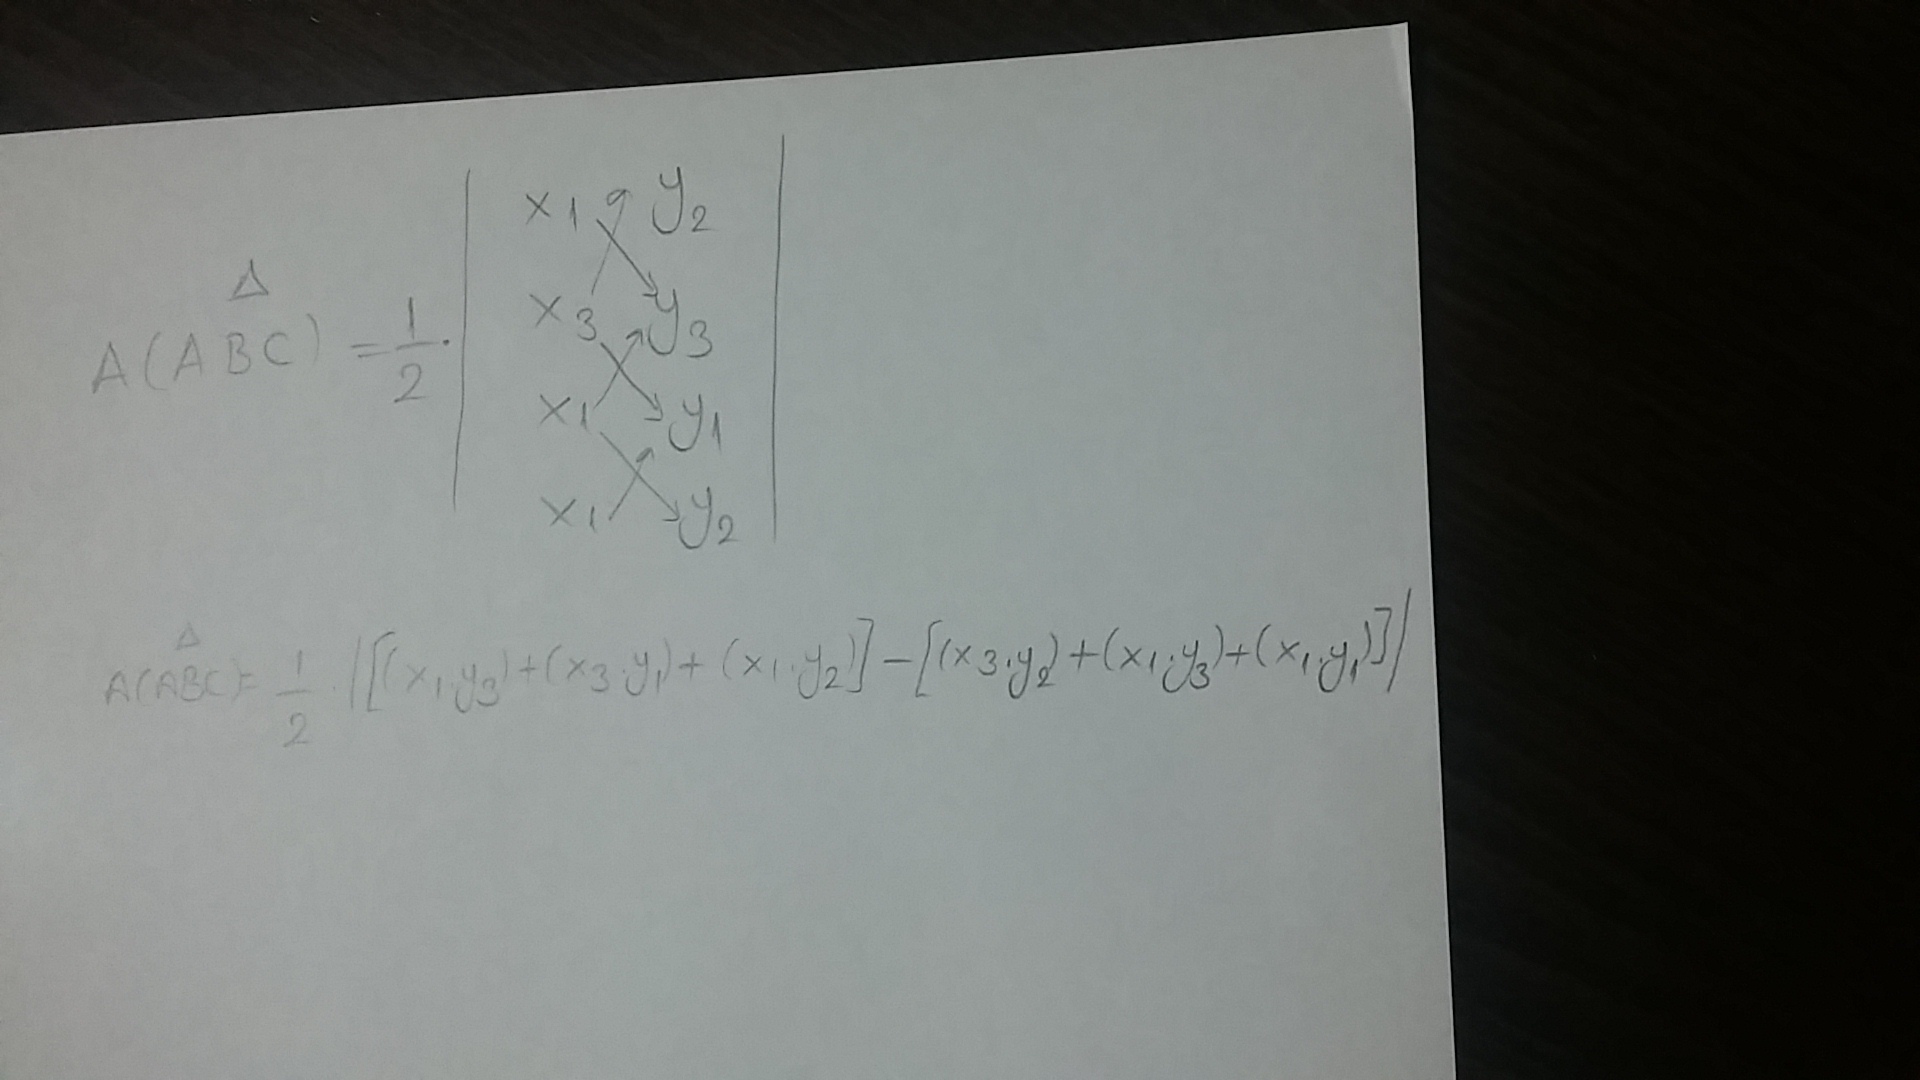 A(ABC) = 1/2 · | x1 y2
x3 y3
x1 y1
x1 y2 |
A(ABC) = 1/2 · |[(x1·y3)+(x3·y1)+(x1·y2)]-[(x3·y2)+(x1·y3)+(x1·y1)]|